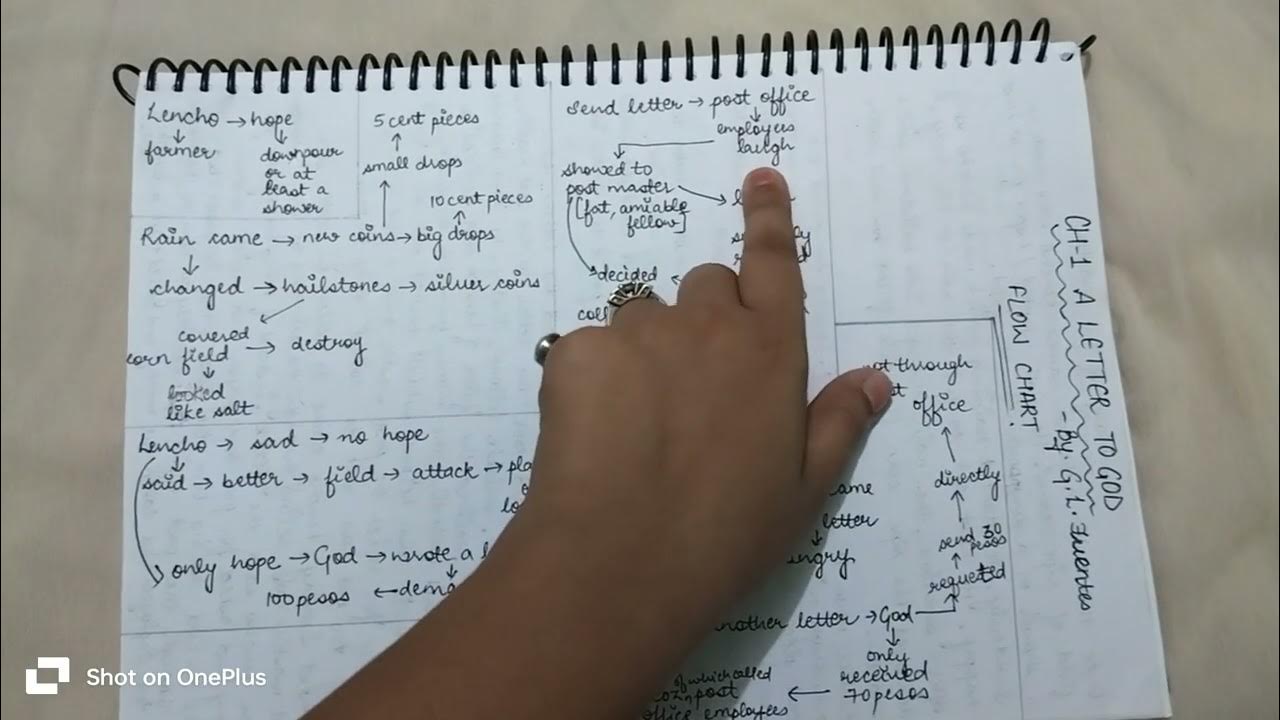 CH-1 A LETTER TO GOD
- By. G.L. Fuentes
FLOW CHART.
Lencho → hope
↓ ↓
farmer downpour
or at
least a
shower
5 cent pieces
↑
small drops
↑
10 cent pieces
↑
Rain came → new coins → big drops
↓
changed → hailstones → silver coins
covered
corn field → destroy
↓
looked
like salt
Lencho → sad → no hope
↓
said → better → field → attack →
only hope → God → wrote a
↓
100 pesos ←
Send letter → post office
↓
employees
laugh
showed to
post master
[fat, amiable
fellow]
decided ←
came
letter
↓
angry
another letter → God
↓
only
received
70 pesos
←
of which called
post
office employees
requested
↑
send 30
pesos
↑
directly
↑
not through
office
Shot on OnePlus